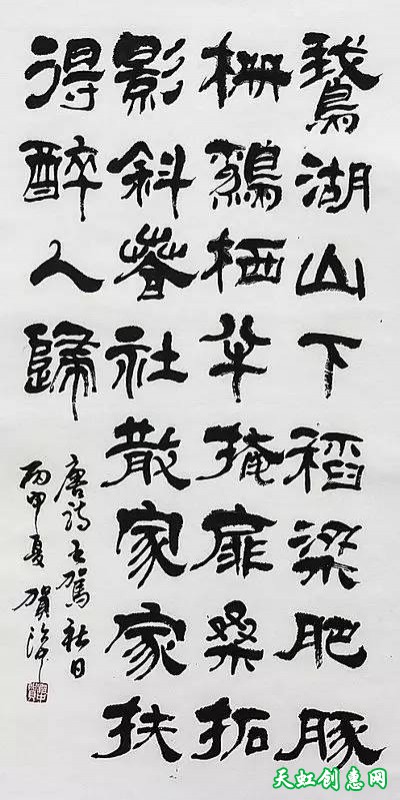 鵝湖山下稻梁肥豚
栅鷄栖半掩扉桑柘
影斜春社散家家扶
得醉人歸
唐詩王駕社日
丙申夏賀
天虹创惠网